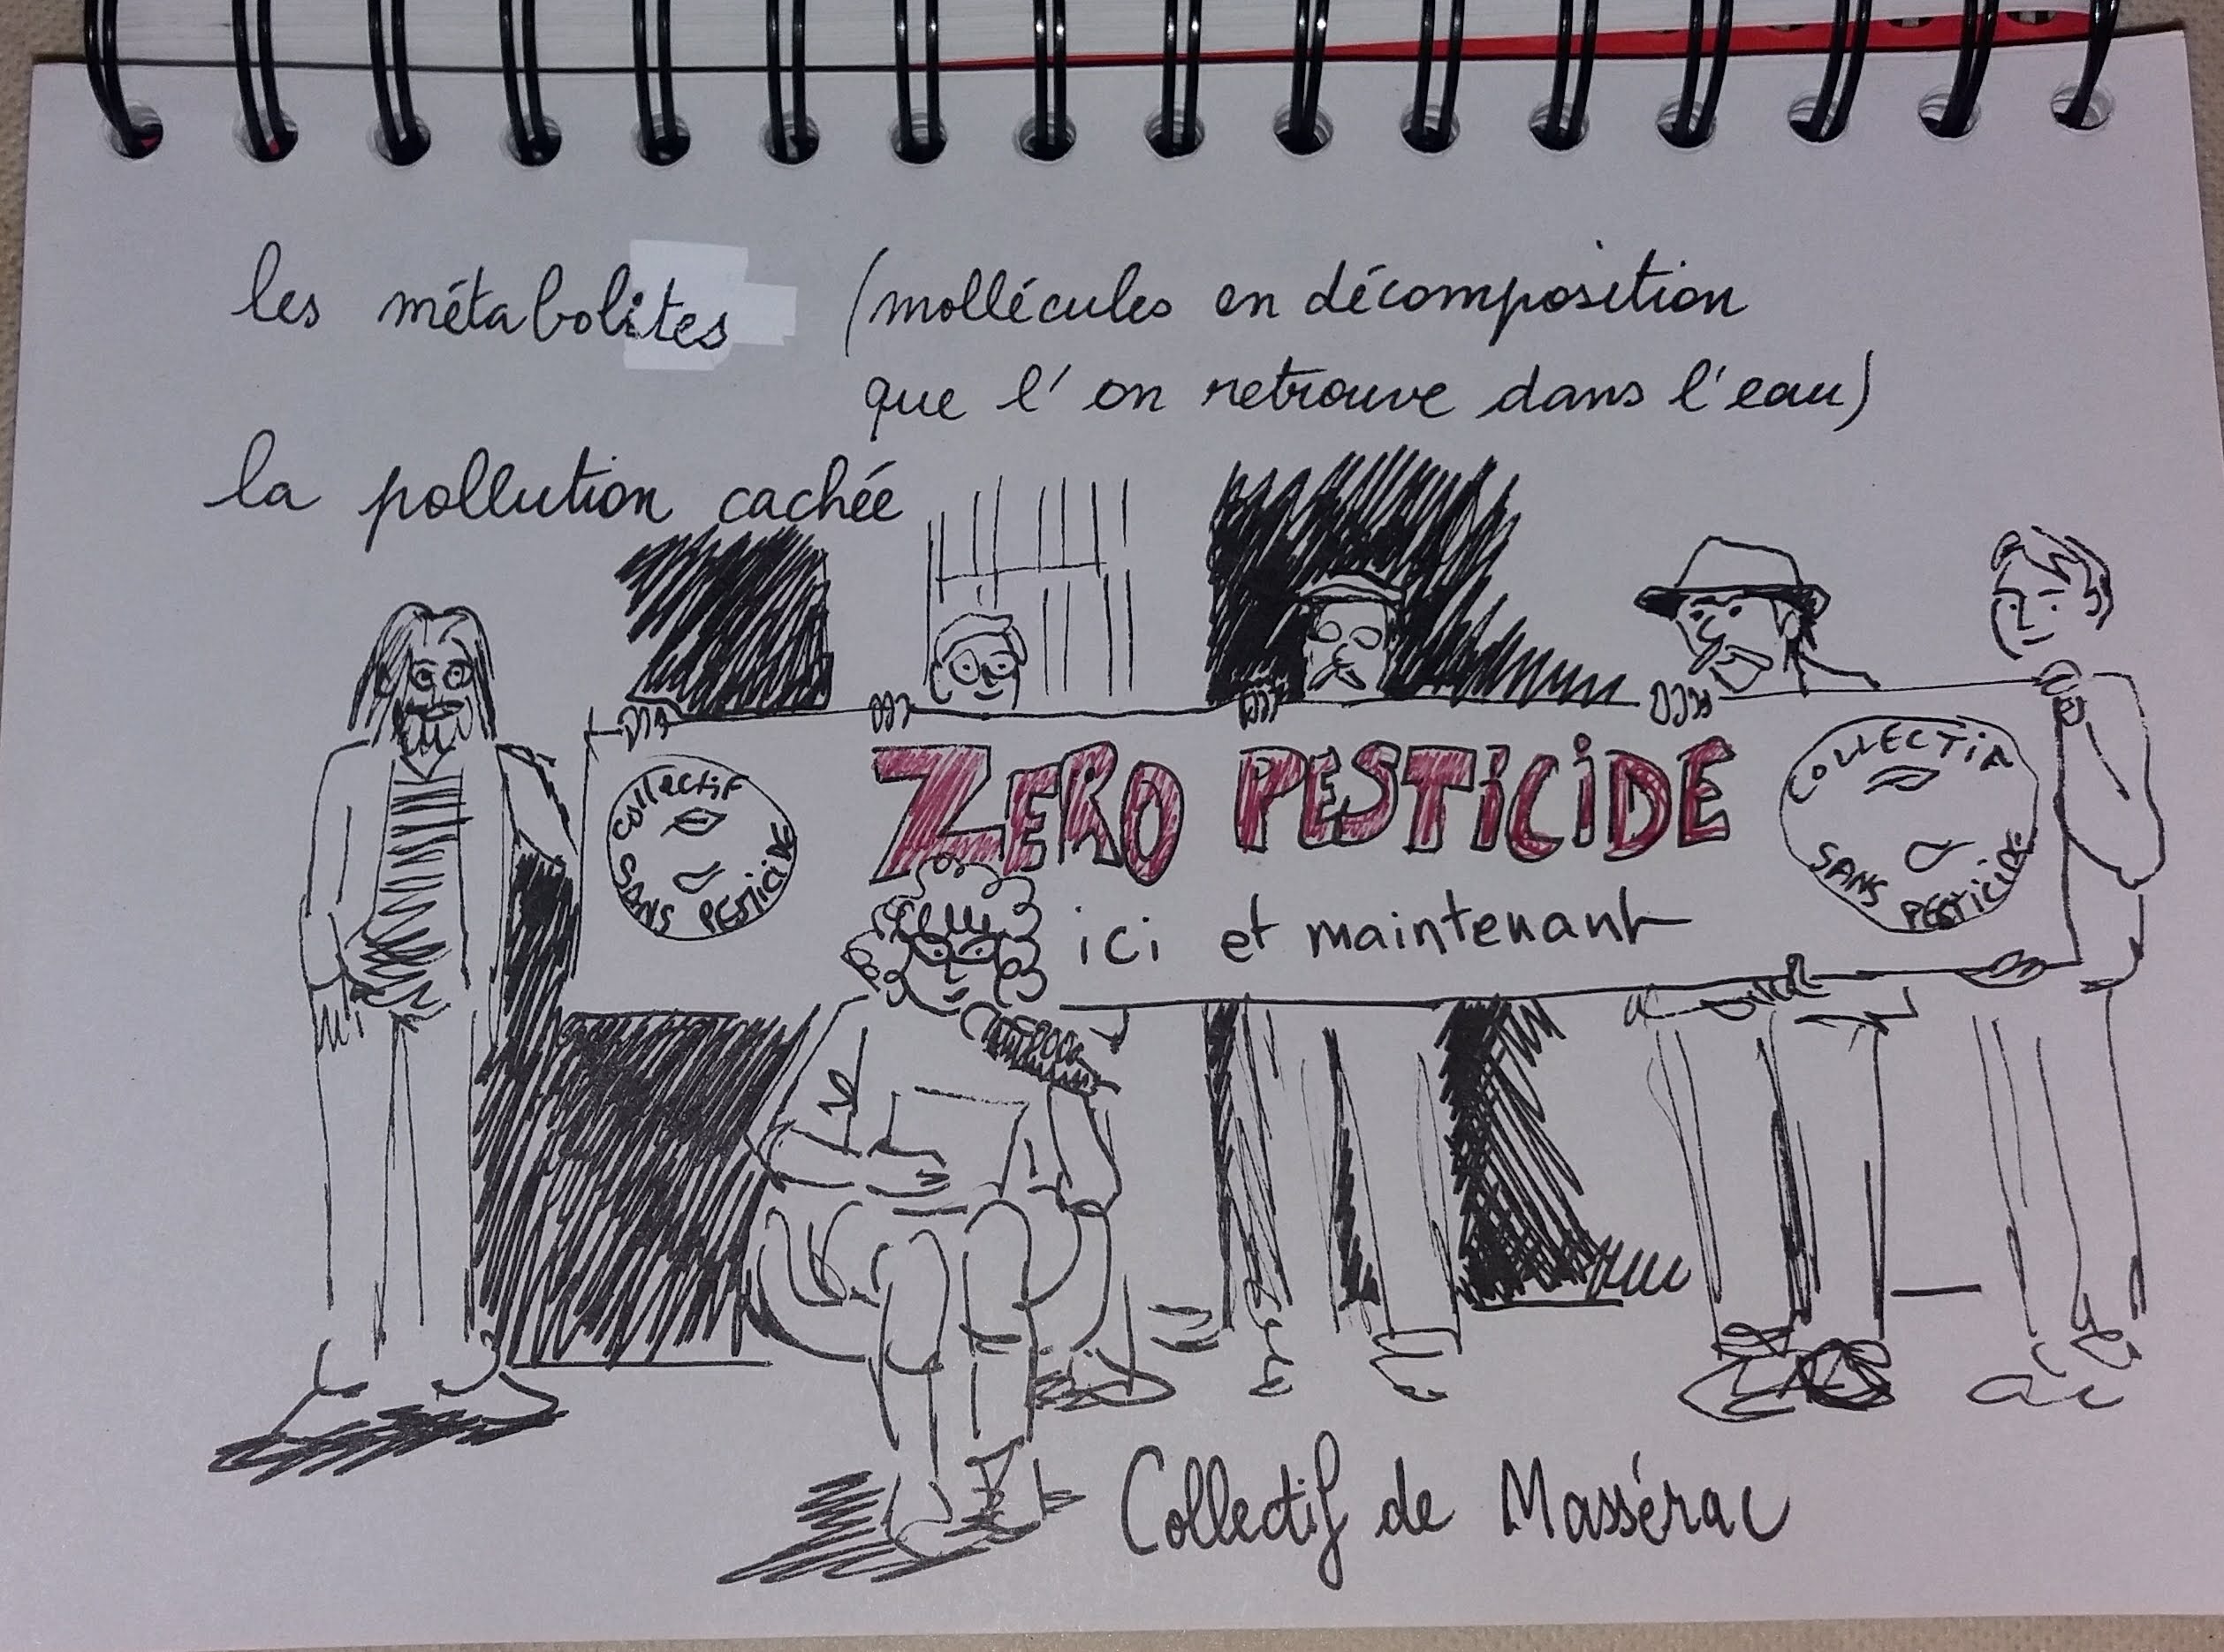 les métabolites (mollécules en décomposition
que l'on retrouve dans l'eau)
la pollution cachée
ZERO PESTICIDE
ici et maintenant
collectif
SANS PESTICIDE
COLLECTIF
SANS PESTICIDE
Collectif de Massérac